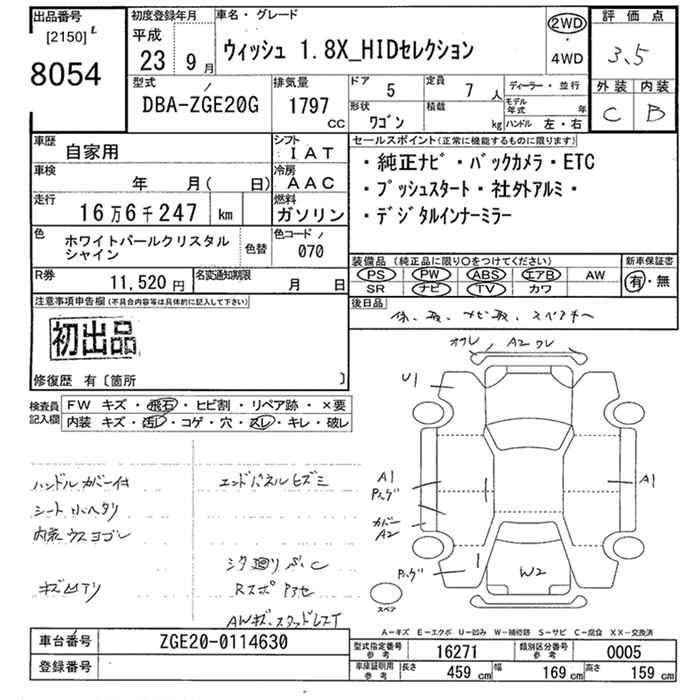 出品番号 [2150] 8054
初度登録年月 平成 23 9月
車名・グレード ウィッシュ 1.8X_HIDセレクション
2WD・4WD
評価点 3.5
外装 内装
C B
型式 DBA-ZGE20G
排気量 1797 CC
ドア 5
定員 7人
ディーラー・並行
形状 ワゴン
積載 kg
モデル年式 年
ハンドル 左・右
車歴 自家用
シフト IAT
車検 年 月( 日)
冷房 AAC
走行 16万6千247 km
燃料 ガソリン
色 ホワイトパールクリスタルシャイン
色替
色コード 070
R券 11,520円
名変通知期限 月 日
セールスポイント(正常に機能するものに限ります)
・純正ナビ・バックカメラ・ETC
・プッシュスタート・社外アルミ・
・デジタルインナーミラー
装備品 (純正品に限り○をつけてください)
新車保証書
PS PW ABS エアB AW
SR ナビ TV カワ
有・無
後日品
保、取、ナビ取、スペアキー
注意事項申告欄(不具合内容等は具体的に記入して下さい)
初出品
修復歴 有〔箇所 〕
検査員記入欄
FW キズ・飛石・ヒビ割・リペア跡・×要
内装 キズ・汚レ・コゲ・穴・スレ・キレ・破レ
ハンドルカバー付
シート小ヘタリ
内装ウスヨゴレ
キズ凹アリ
エンドパネルヒズミ
シタ廻り
AWキズ、スタッドレスT
A2 ワレ
U1
A1
A1
カバー
A2
W2
スペア
A-キズ E-エクボ U-凹み W-補修跡 S-サビ C-腐食 XX-交換済
車台番号 ZGE20-0114630
登録番号
型式指定番号 参考 16271
類別区分番号 参考 0005
車庫証明用 参考 長さ 459 cm 幅 169 cm 高さ 159 cm